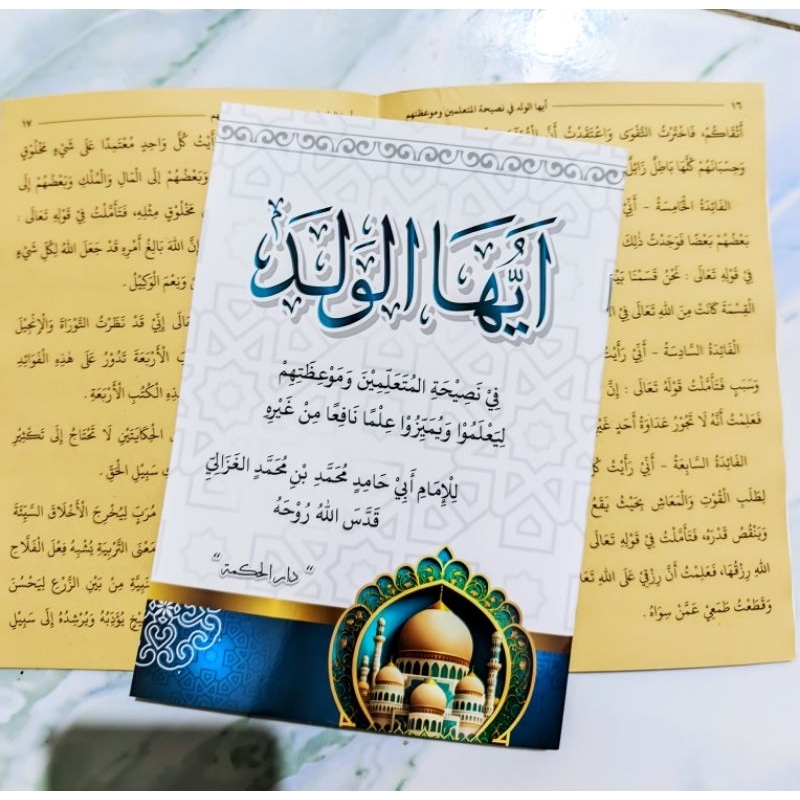 أَيُّهَا الوَلَد
فِيْ نَصِيْحَةِ المُتَعَلِّمِيْنَ وَمَوْعِظَتِهِمْ
لِيَعْلَمُوْا وَيُمَيِّزُوْا عِلْمًا نَافِعًا مِنْ غَيْرِهِ
لِلْإِمَامِ أَبِيْ حَامِدٍ مُحَمَّدِ بْنِ مُحَمَّدٍ الغَزَالِيّ
قَدَّسَ اللهُ رُوْحَهُ
" دار الحكمة "
١٦
أيها الولد في نصيحة المتعلمين وموعظتهم
أَتْقَاكُمْ، فَاخْتَرْتُ التَّقْوَى وَاعْتَقَدْتُ أَنَّ
وَحِسْبَانَهُمْ كُلَّهَا بَاطِلٌ زَائِلٌ
الفَائِدَةُ الخَامِسَةُ - أَنِّيْ
بَعْضُهُمْ بَعْضًا فَوَجَدْتُ ذَلِكَ
فِيْ قَوْلِهِ تَعَالَى : نَحْنُ قَسَمْنَا
القِسْمَةَ كَانَتْ مِنَ اللهِ تَعَالَى فِي
الفَائِدَةُ السَّادِسَةُ - أَنِّيْ رَأَيْتُ
وَسَبَبٍ فَتَأَمَّلْتُ قَوْلَهُ تَعَالَى : إِنَّ
فَعَلِمْتُ أَنَّهُ لَا تَجُوْزُ عَدَاوَةُ أَحَدٍ
الفَائِدَةُ السَّابِعَةُ - أَنِّيْ رَأَيْتُ
لِطَلَبِ القُوْتِ وَالمَعَاشِ بِحَيْثُ يَقَعُ
وَيَنْقُصُ قَدْرُهُ، فَتَأَمَّلْتُ فِيْ قَوْلِهِ تَعَالَى
اللهِ رِزْقُهَا، فَعَلِمْتُ أَنَّ رِزْقِيْ عَلَى اللهِ
وَقَطَعْتُ طَمَعِيْ عَمَّنْ سِوَاهُ .
١٧
كُلَّ وَاحِدٍ مُعْتَمِدًا عَلَى شَيْءٍ مَخْلُوْقٍ
وَبَعْضُهُمْ إِلَى المَالِ وَالمُلْكِ وَبَعْضُهُمْ إِلَى
مَخْلُوْقٍ مِثْلِهِ، فَتَأَمَّلْتُ فِيْ قَوْلِهِ تَعَالَى :
إِنَّ اللهَ بَالِغُ أَمْرِهِ قَدْ جَعَلَ اللهُ لِكُلِّ شَيْءٍ
وَنِعْمَ الوَكِيْلُ .
إِنِّيْ قَدْ نَظَرْتُ التَّوْرَاةَ وَالإِنْجِيْلَ
الأَرْبَعَةَ تَدُوْرُ عَلَى هَذِهِ الفَوَائِدِ
الكُتُبِ الأَرْبَعَةِ .
الحِكَايَتَيْنِ لَا تَحْتَاجُ إِلَى تَكْثِيْرِ
سَبِيْلِ الحَقِّ .
مُرَبٍّ لِيُخْرِجَ الأَخْلَاقَ السَّيِّئَةَ
مَعْنَى التَّرْبِيَةِ يُشْبِهُ فِعْلَ الفَلَّاحِ
مِنْ بَيْنِ الزَّرْعِ لِيَحْسُنَ
يُؤَدِّبُهُ وَيُرْشِدُهُ إِلَى سَبِيْلِ